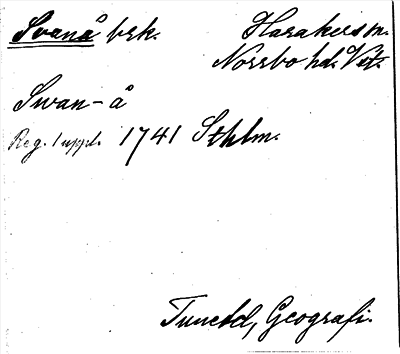 Svanå brk. Harakers sn.
Norrbo hd. Vstm.
Swan-å
Reg. 1 uppl. 1741 Sthlm.
Tuneld, Geografi.